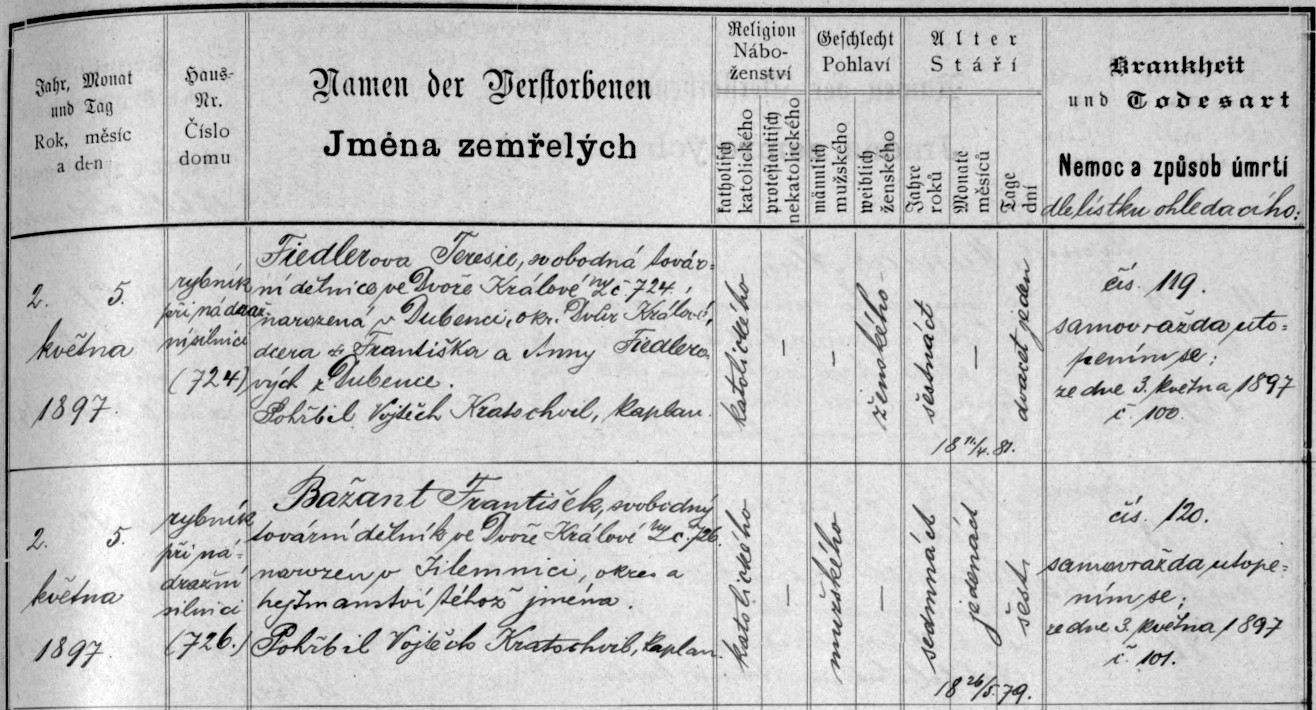 Jahr, Monat
und Tag
Rok, měsíc
a den
Haus-
Nr.
Číslo
domu
Namen der Verstorbenen
Jména zemřelých
Religion
Nábo-
ženství
katholisch
katolického
protestantisch
nekatolického
Geschlecht
Pohlaví
männlich
mužského
weiblich
ženského
Alter
Stáří
Jahre
roků
Monate
měsíců
Tage
dní
Krankheit
und Todesart
Nemoc a způsob úmrtí
dle lístku ohledacího:
2. 5.
května
1897.
rybník
při nádraž-
ní silnici
(724)
Fiedlerova Teresie, svobodná továr-
ní dělnice ve Dvoře Králové č 724,
narozená v Dubenci, okr. Dvůr Králové,
dcera Františka a Anny Fiedlero-
vých z Dubence.
Pohřbil Vojtěch Kratschvil, kaplan.
katolického
—
—
ženského
šestnáct
—
dvacet jeden
18 11/4. 81.
čís. 119.
samovražda uto-
pením se;
ze dne 3. května 1897
č. 100.
2. 5.
května
1897.
rybník
při ná-
dražní
silnici
(726.)
Bažant František, svobodný
tovární dělník ve Dvoře Králové č. 726.
narozen v Jilemnici, okres a
hejtmanství téhož jména.
Pohřbil Vojtěch Kratschvil, kaplan.
katolického
—
mužského
—
sedmnáct
jedenáct
šest
18 26/5. 79.
čís. 120.
samovražda utope-
ním se;
ze dne 3. května 1897
č. 101.